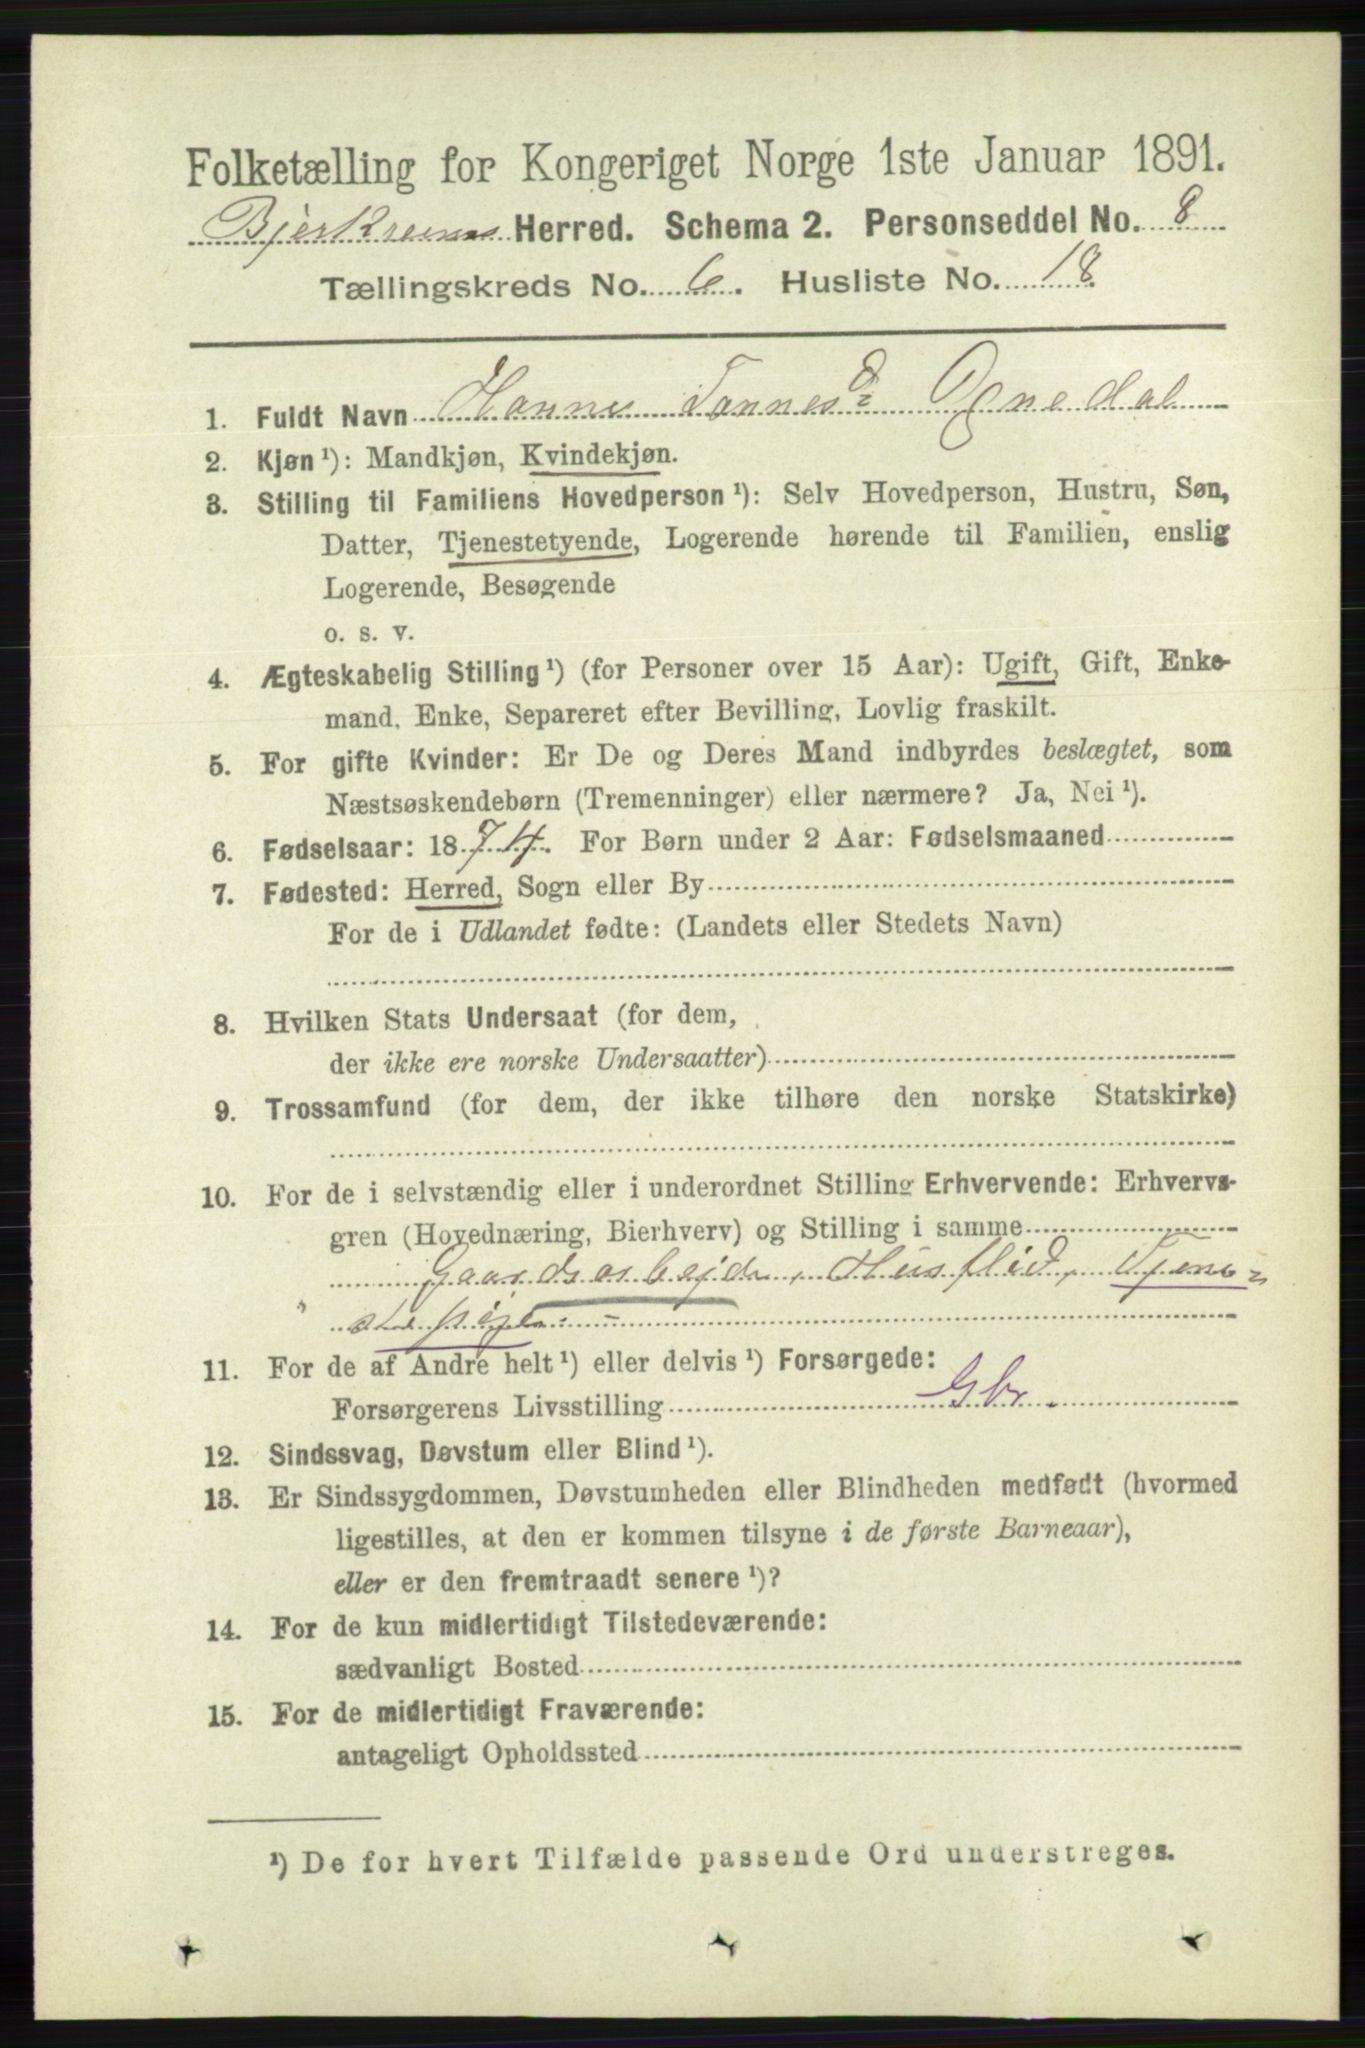 Folketælling for Kongeriget Norge 1ste Januar 1891.
Bjerkreims Herred. Schema 2. Personseddel No. 8
Tællingskreds No. 6. Husliste No. 18.
1. Fuldt Navn Hanne Tønnesd. Ognedal
2. Kjøn ¹): Mandkjøn, Kvindekjøn.
3. Stilling til Familiens Hovedperson ¹): Selv Hovedperson, Hustru, Søn,
Datter, Tjenestetyende, Logerende hørende til Familien, enslig
Logerende, Besøgende
o. s. v.
4. Ægteskabelig Stilling ¹) (for Personer over 15 Aar): Ugift, Gift, Enke-
mand, Enke, Separeret efter Bevilling, Lovlig fraskilt.
5. For gifte Kvinder: Er De og Deres Mand indbyrdes beslægtet, som
Næstsøskendebørn (Tremenninger) eller nærmere? Ja, Nei ¹).
6. Fødselsaar: 1874. For Børn under 2 Aar: Fødselsmaaned
7. Fødested: Herred, Sogn eller By
For de i Udlandet fødte: (Landets eller Stedets Navn)
8. Hvilken Stats Undersaat (for dem,
der ikke ere norske Undersaatter)
9. Trossamfund (for dem, der ikke tilhøre den norske Statskirke)
10. For de i selvstændig eller i underordnet Stilling Erhvervende: Erhvervs-
gren (Hovednæring, Bierhverv) og Stilling i samme
Gaardsarbejde, Husflid, Tjene-
ste pige
11. For de af Andre helt ¹) eller delvis ¹) Forsørgede:
Forsørgerens Livsstilling Gbr.
12. Sindssvag, Døvstum eller Blind ¹).
13. Er Sindssygdommen, Døvstumheden eller Blindheden medfødt (hvormed
ligestilles, at den er kommen tilsyne i de første Barneaar),
eller er den fremtraadt senere ¹)?
14. For de kun midlertidigt Tilstedeværende:
sædvanligt Bosted
15. For de midlertidigt Fraværende:
antageligt Opholdssted
¹) De for hvert Tilfælde passende Ord understreges.